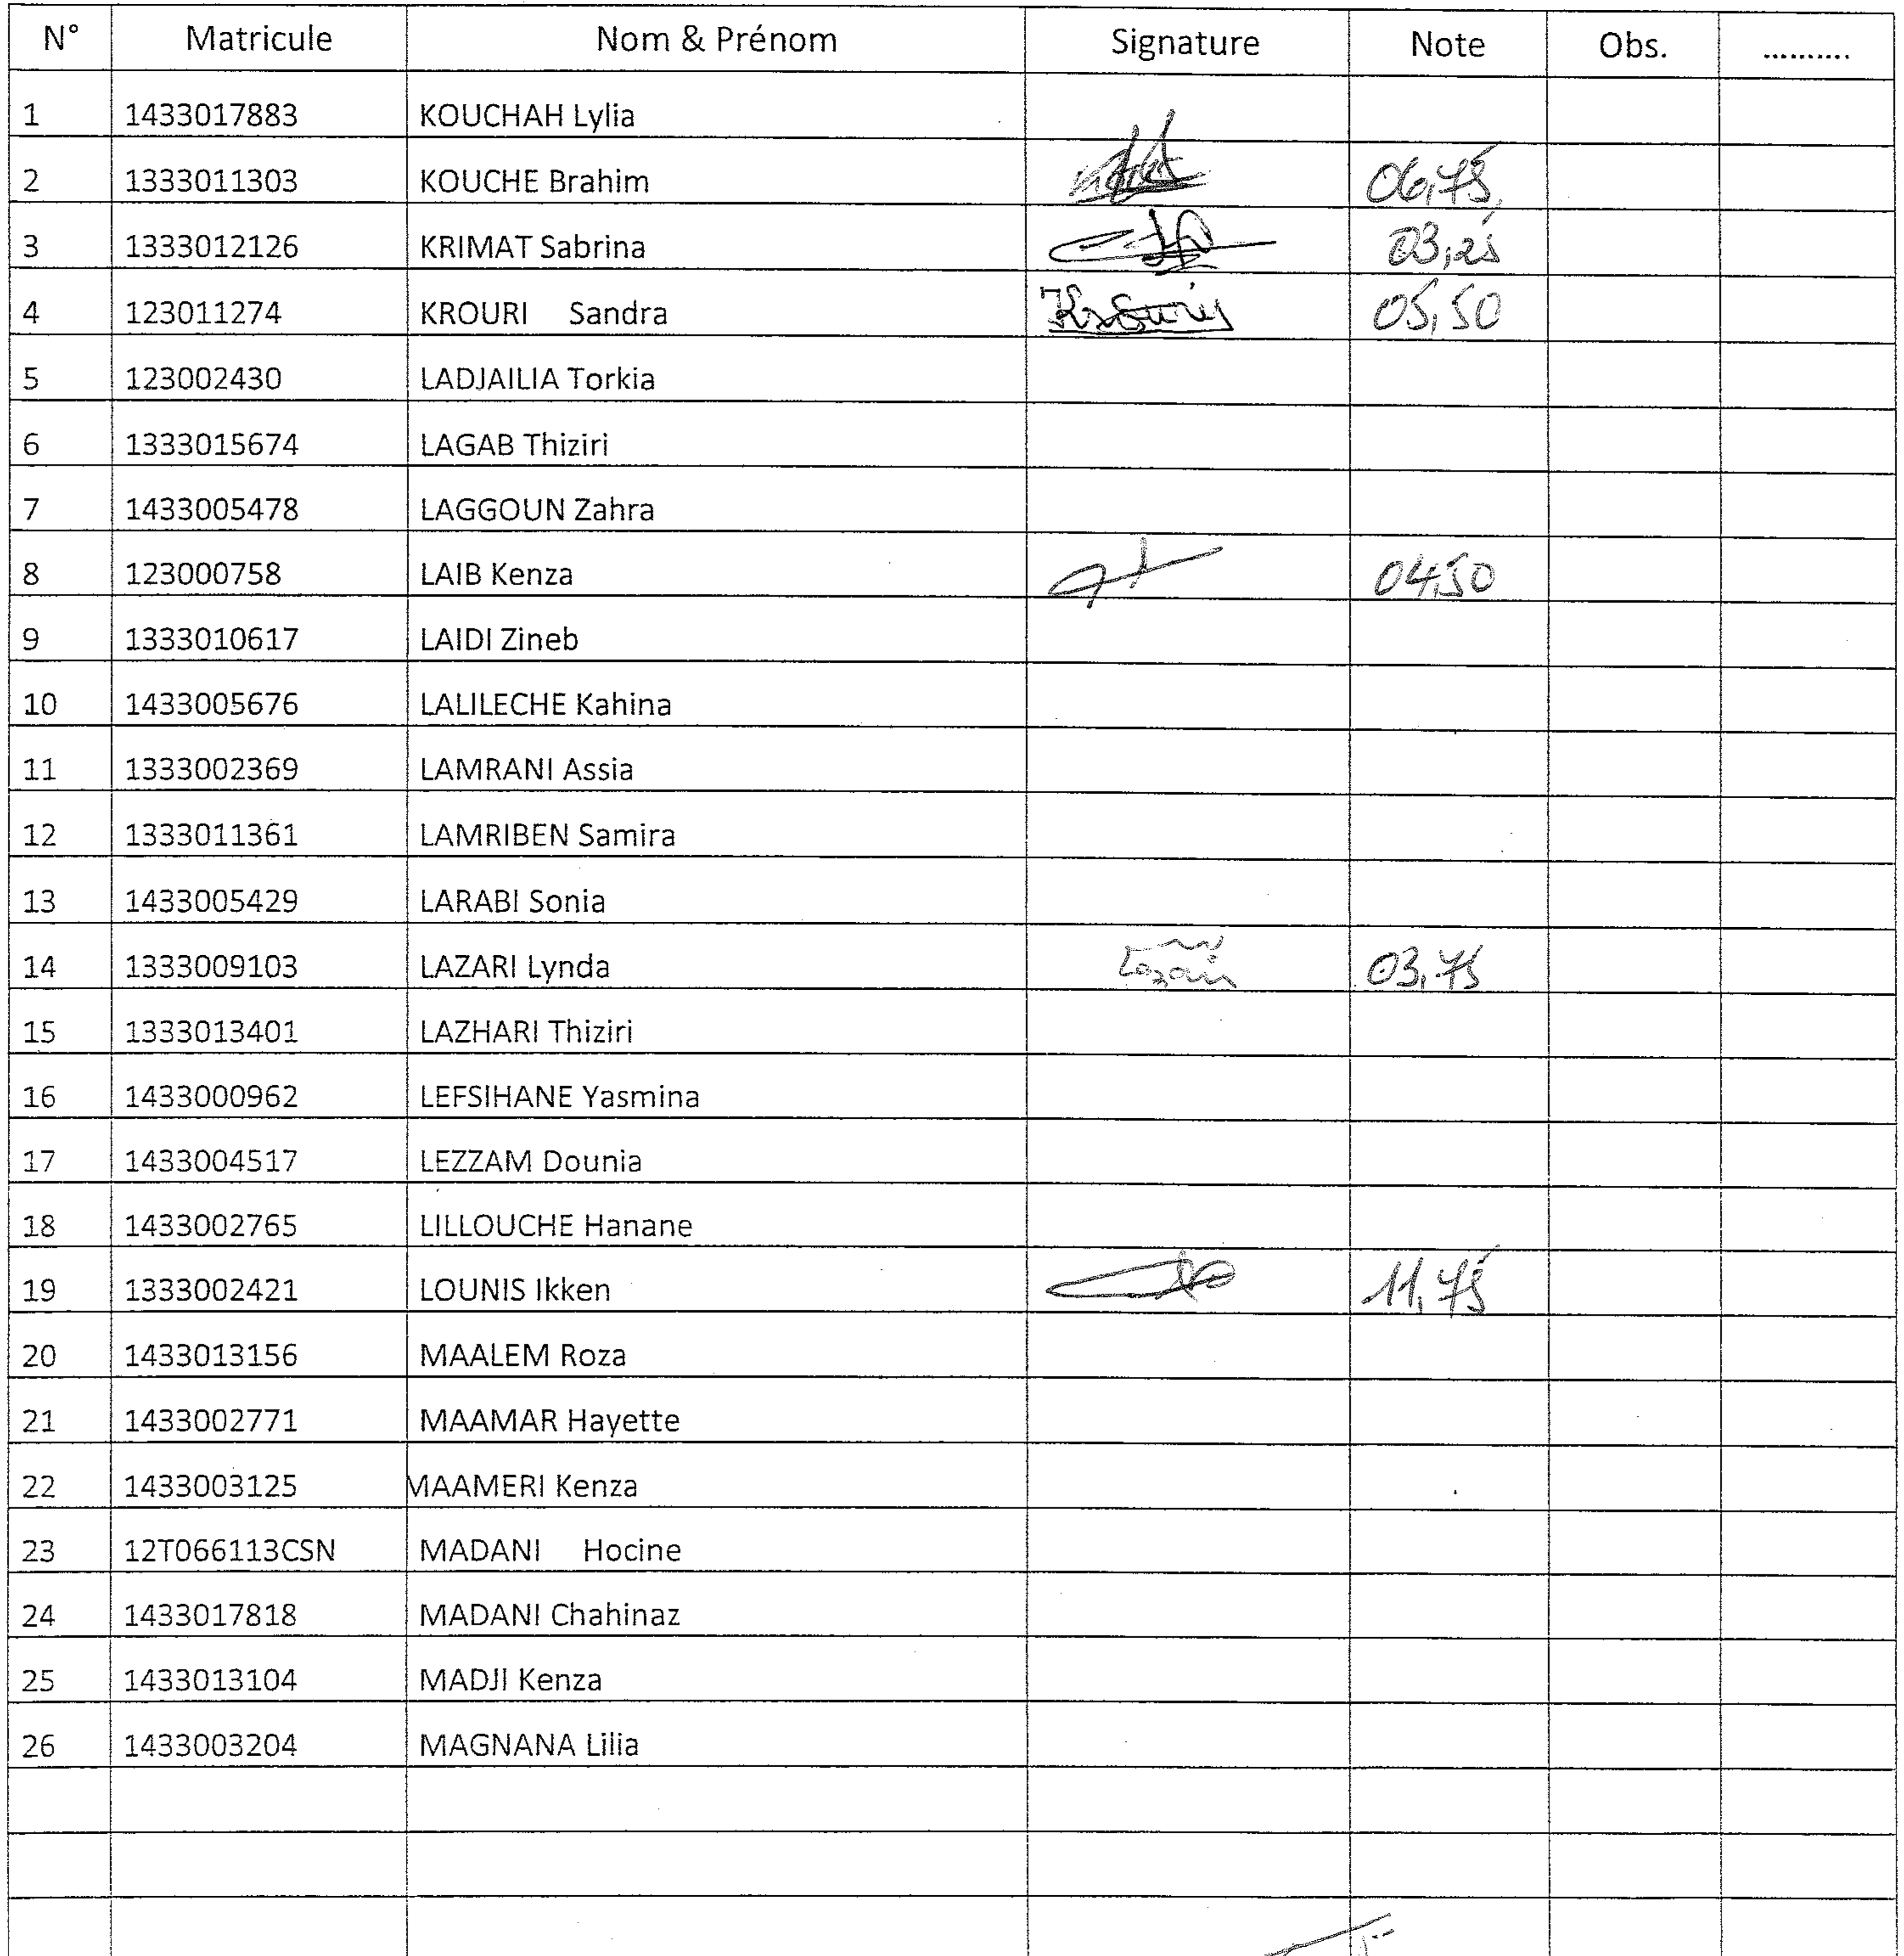 N° Matricule Nom & Prénom Signature Note Obs. ..........
1 1433017883 KOUCHAH Lylia
2 1333011303 KOUCHE Brahim 06,75
3 1333012126 KRIMAT Sabrina 03,25
4 123011274 KROURI Sandra 05,50
5 123002430 LADJAILIA Torkia
6 1333015674 LAGAB Thiziri
7 1433005478 LAGGOUN Zahra
8 123000758 LAIB Kenza 04,50
9 1333010617 LAIDI Zineb
10 1433005676 LALILECHE Kahina
11 1333002369 LAMRANI Assia
12 1333011361 LAMRIBEN Samira
13 1433005429 LARABI Sonia
14 1333009103 LAZARI Lynda 03,75
15 1333013401 LAZHARI Thiziri
16 1433000962 LEFSIHANE Yasmina
17 1433004517 LEZZAM Dounia
18 1433002765 LILLOUCHE Hanane
19 1333002421 LOUNIS Ikken 11,75
20 1433013156 MAALEM Roza
21 1433002771 MAAMAR Hayette
22 1433003125 MAAMERI Kenza
23 12T066113CSN MADANI Hocine
24 1433017818 MADANI Chahinaz
25 1433013104 MADJI Kenza
26 1433003204 MAGNANA Lilia